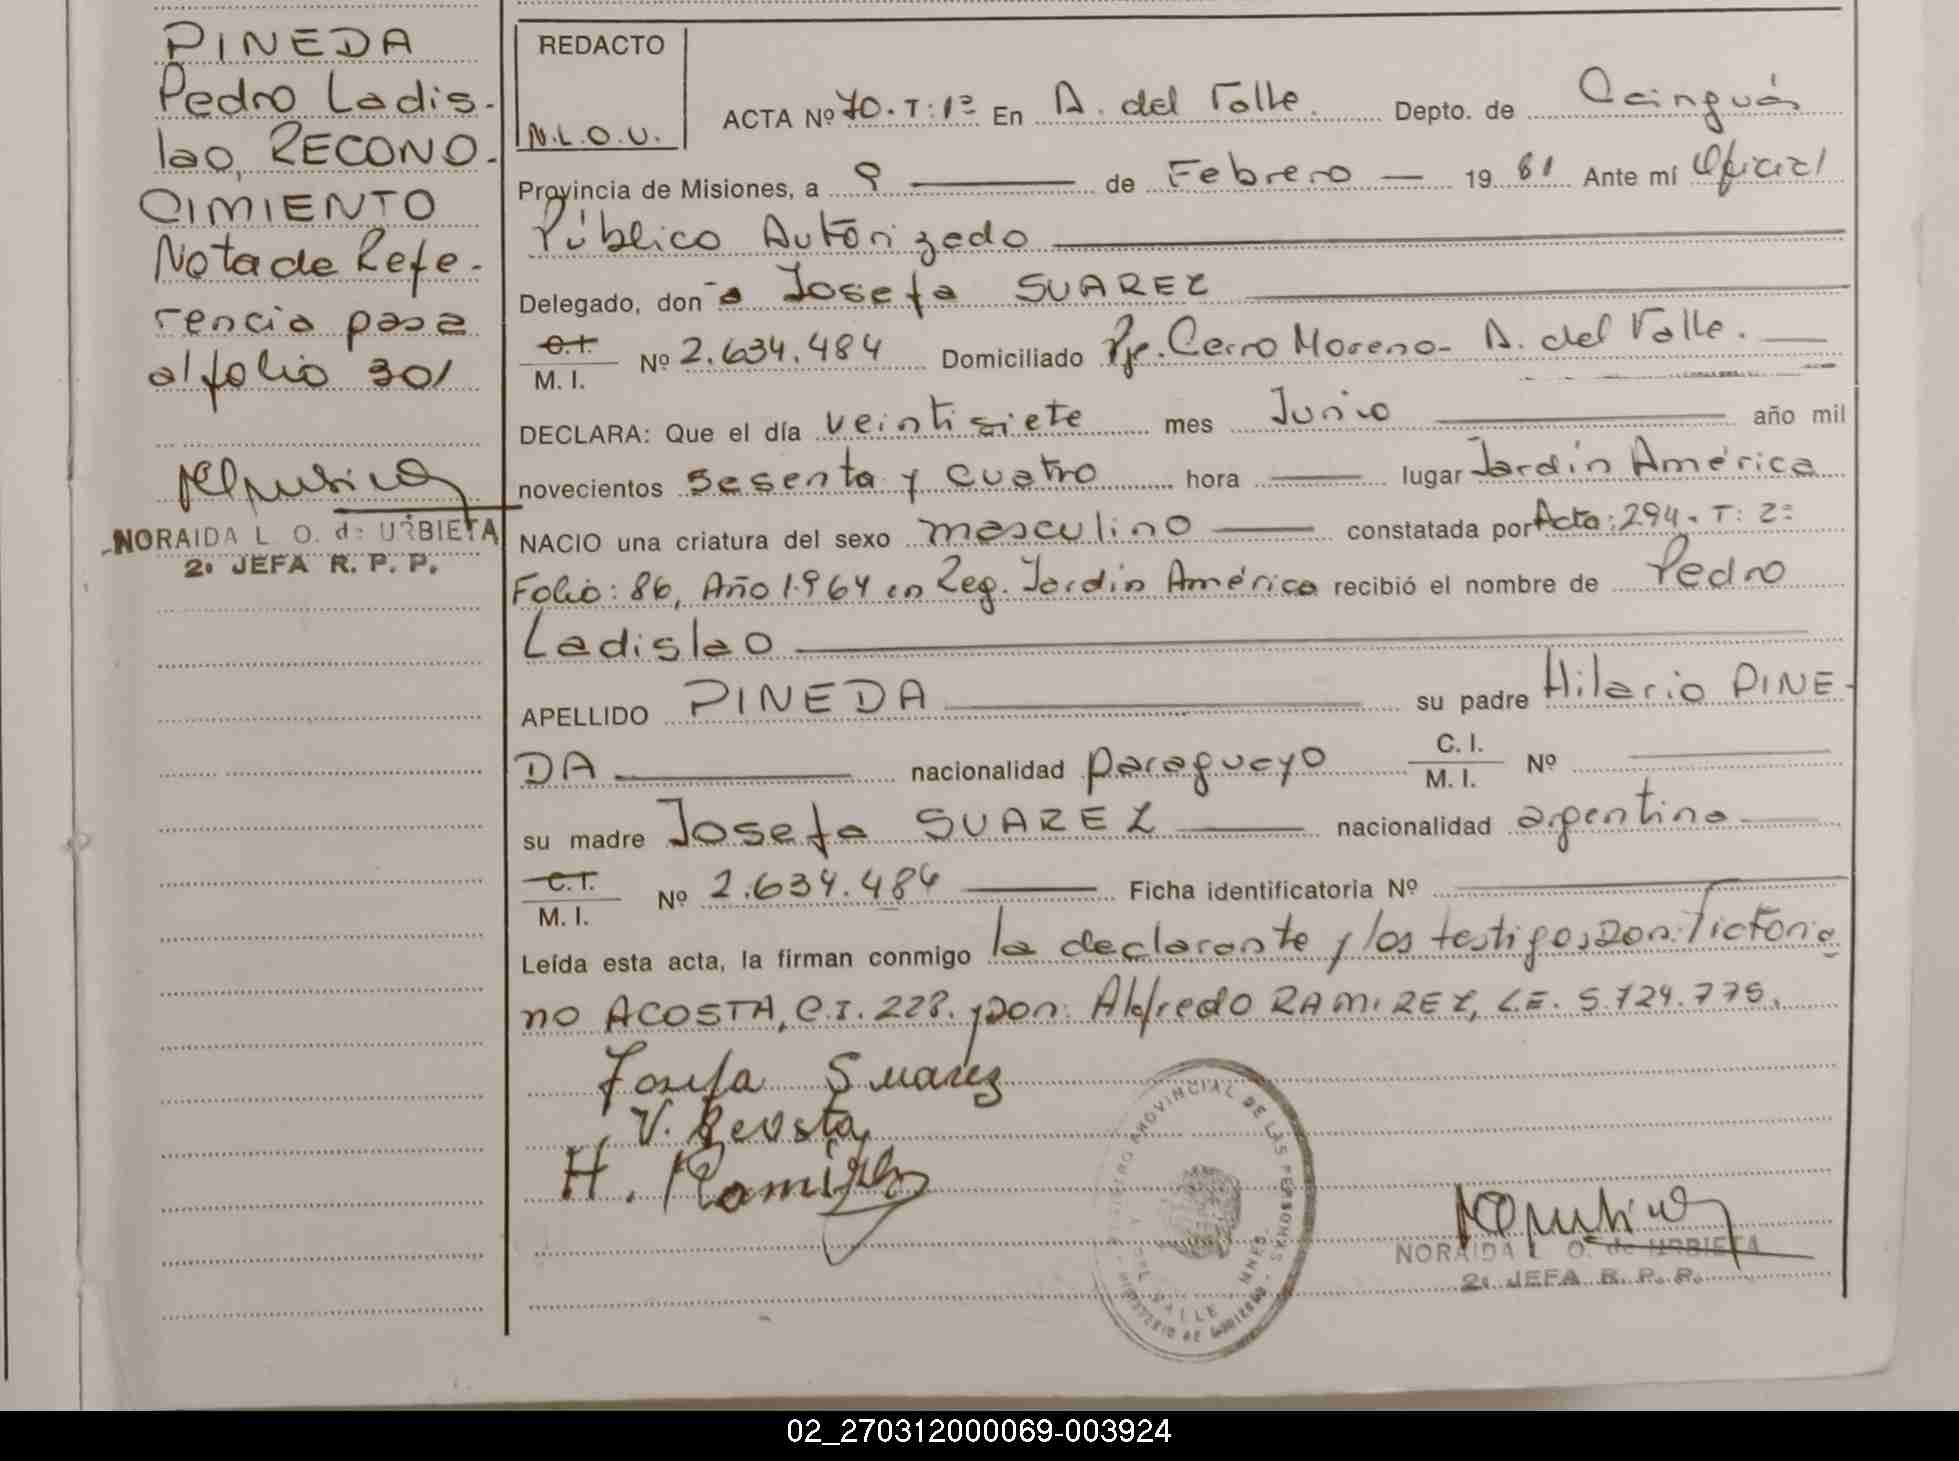 PINEDA
Pedro Ladis-
lao, RECONO-
CIMIENTO
Nota de Refe-
rencia pasa
al folio 301
NORAIDA L O. de URBIETA
2ª JEFA R. P. P.
REDACTO
N.L.O.U.
ACTA Nº 70. T: 1º En A. del Valle. Depto. de Cainguás
Provincia de Misiones, a 9 — de Febrero — 19 81 Ante mí Oficial
Público Autorizado
Delegado, don ª Josefa SUAREZ
C.I. / M. I. Nº 2.634.484 Domiciliado Pje. Cerro Moreno - A. del Valle.
DECLARA: Que el día veintisiete mes Junio año mil
novecientos sesenta y cuatro hora — lugar Jardín América
NACIO una criatura del sexo masculino — constatada por Acta: 294. T: 2º
Folio: 86, Año 1.964 en Reg. Jardín América recibió el nombre de Pedro
Ladislao
APELLIDO PINEDA su padre Hilario PINE-
DA nacionalidad paraguayo C. I. / M. I. Nº
su madre Josefa SUAREZ nacionalidad argentina
C.I. / M. I. Nº 2.634.484 Ficha identificatoria Nº
Leída esta acta, la firman conmigo la declarante y los testigos, Don: Victoria
no ACOSTA, C.I. 228. y Don: Alfredo RAMIREZ, L.E. 5.724.775.
Josefa Suarez
V. Acosta
H. Ramirez
REGISTRO PROVINCIAL DE LAS PERSONAS
DEL VALLE - MNES.
MINISTERIO DE GOBIERNO
NORAIDA L. O. de URBIETA
2ª JEFA R. P. P.
02_270312000069-003924